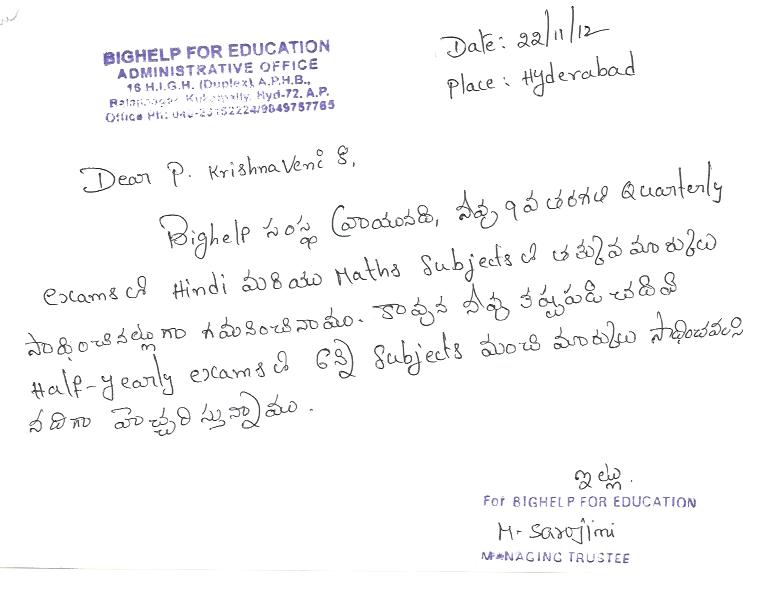 BIGHELP FOR EDUCATION
ADMINISTRATIVE OFFICE
16 H.I.G.H. (Duplex) A.P.H.B.,
Hyd-72. A.P.
Office Ph: 040-23152224/9849757765
Date: 22/11/12
Place: Hyderabad
Dear P. KrishnaVeni కి,
Bighelp సంస్థ వ్రాయునది, నీవు 9వ తరగతి Quarterly
exams లో Hindi మరియు Maths Subjects లో తక్కువ మార్కులు
సాధించినట్లుగా గమనించినాము. కావున నీవు కష్టపడి చదివి
Half-yearly exams లో అన్ని Subjects మంచి మార్కులు సాధించవలసి
నదిగా హెచ్చరిస్తున్నాము.
ఇట్లు.
For BIGHELP FOR EDUCATION
M. Sarojini
MANAGING TRUSTEE